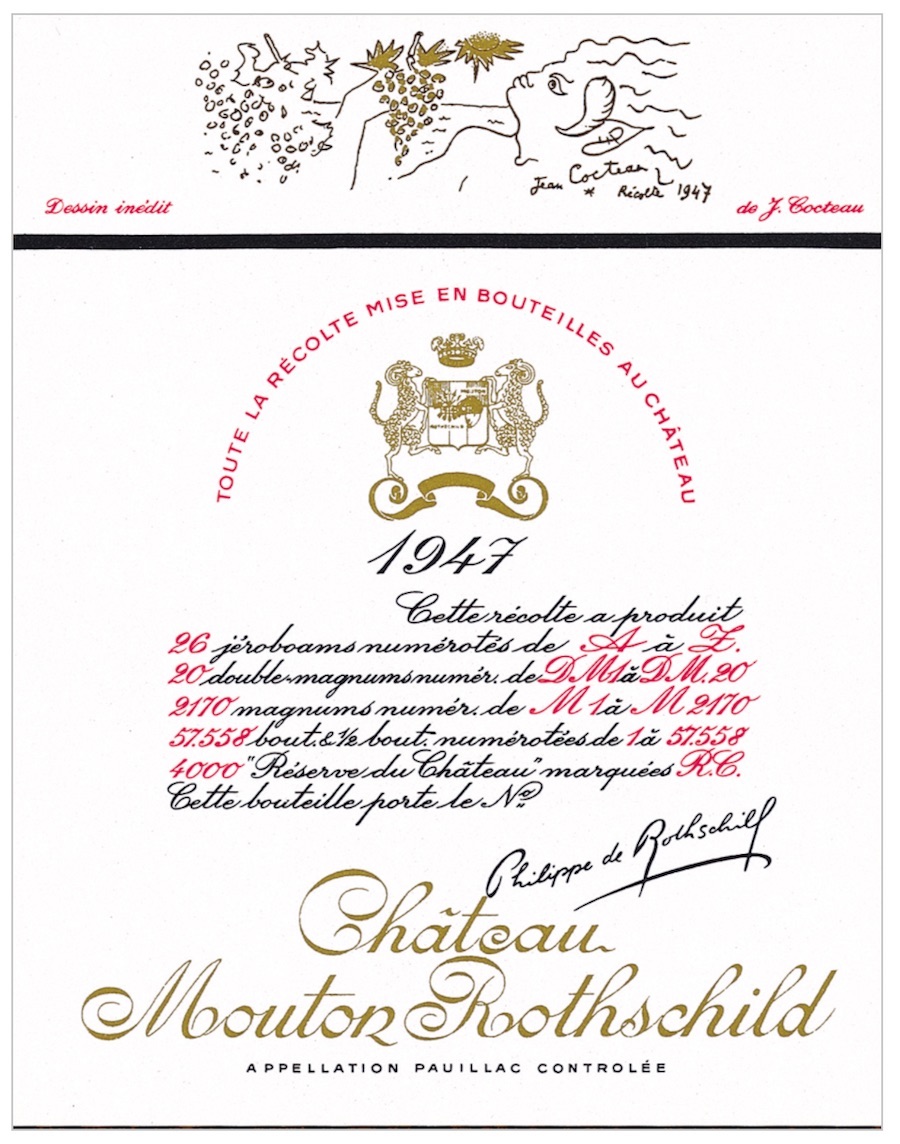 Jean Cocteau
* Récolte 1947
Dessin inédit
de J. Cocteau
TOUTE LA RÉCOLTE MISE EN BOUTEILLES AU CHÂTEAU
MOUTON
ROTHSCHILD
1947
Cette récolte a produit
26 jéroboams numérotés de A à Z.
20 double-magnums numér. de DM1 à DM.20
2170 magnums numér. de M 1 à M 2170
57.558 bout. & ½ bout. numérotées de 1 à 57.558
4000 "Réserve du Château" marquées R.C.
Cette bouteille porte le No
Philippe de Rothschild
Château
Mouton Rothschild
APPELLATION PAUILLAC CONTROLÉE